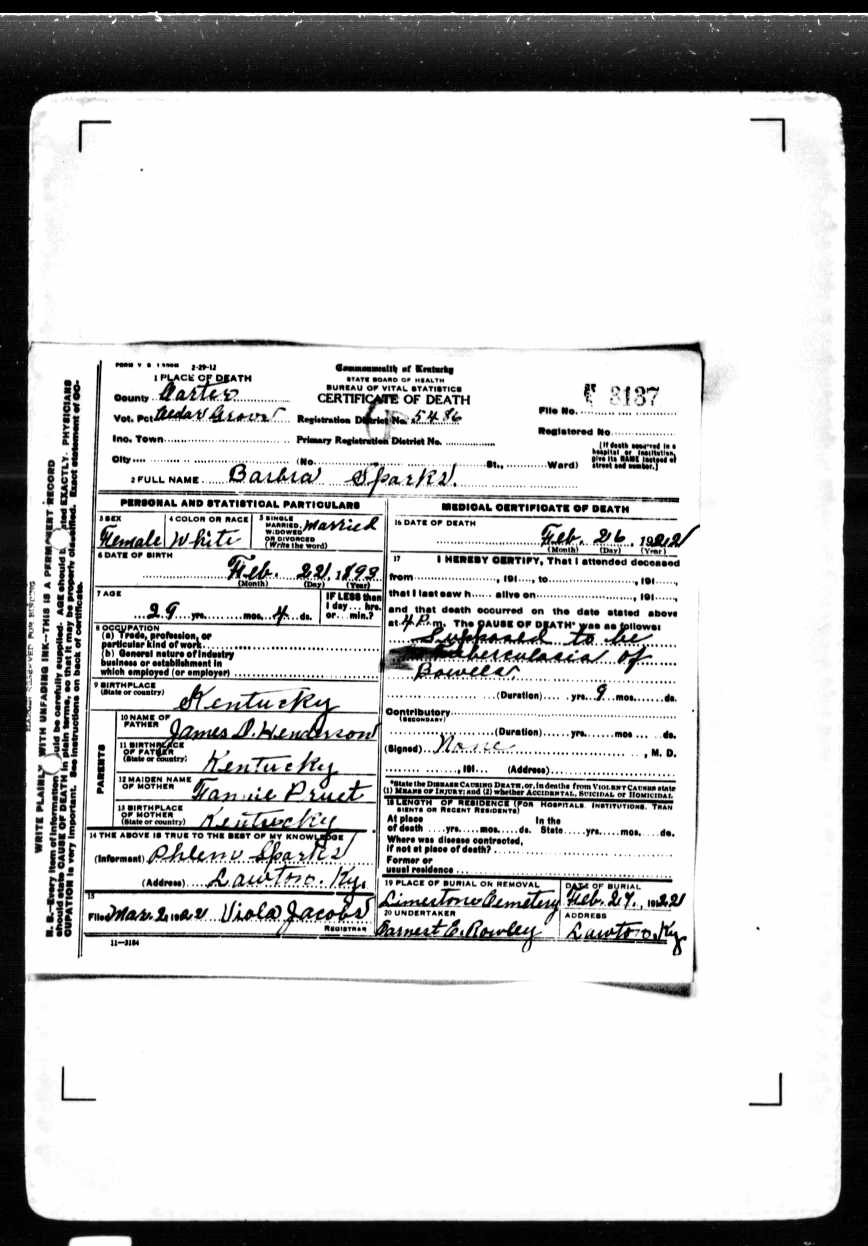 FORM V. S. 2-29-12
Commonwealth of Kentucky
STATE BOARD OF HEALTH
BUREAU OF VITAL STATISTICS
CERTIFICATE OF DEATH
1 PLACE OF DEATH
County Carter
Vot. Pct Cedar Grove Registration District No. 5486
Inc. Town Primary Registration District No.
City (No. St., Ward)
File No. 3137
Registered No.
[If death occurred in a hospital or institution, give its NAME instead of street and number.]
2 FULL NAME Barbra Sparks.
PERSONAL AND STATISTICAL PARTICULARS
3 SEX
Female
4 COLOR OR RACE
White
5 SINGLE MARRIED, WIDOWED OR DIVORCED (Write the word)
Married
6 DATE OF BIRTH
Feb. 22, 1893
(Month) (Day) (Year)
7 AGE
29 yrs. mos. 4 ds.
IF LESS than 1 day hrs. or min.?
8 OCCUPATION
(a) Trade, profession, or particular kind of work
(b) General nature of industry business or establishment in which employed (or employer)
9 BIRTHPLACE
(State or country)
Kentucky
PARENTS
10 NAME OF FATHER
James D. Henderson
11 BIRTHPLACE OF FATHER
(State or country)
Kentucky
12 MAIDEN NAME OF MOTHER
Fannie Pruet
13 BIRTHPLACE OF MOTHER
(State or country)
Kentucky
14 THE ABOVE IS TRUE TO THE BEST OF MY KNOWLEDGE
(Informant) Phlem Sparks
(Address) Lawton, Ky.
15
Filed Mar. 2, 1922 Viola Jacobs
REGISTRAR
11-3184
MEDICAL CERTIFICATE OF DEATH
16 DATE OF DEATH
Feb. 26, 1922
(Month) (Day) (Year)
17 I HEREBY CERTIFY, That I attended deceased
from , 191 , to , 191 ,
that I last saw h alive on , 191 ,
and that death occurred on the date stated above
at 4 P. m. The CAUSE OF DEATH* was as follows:
Supposed to be
Tuberculasia of
Bowels.
(Duration) yrs. 9 mos. ds.
Contributory
(SECONDARY)
(Duration) yrs. mos. ds.
(Signed) None , M. D.
, 191 (Address)
*State the DISEASE CAUSING DEATH, or, in deaths from VIOLENT CAUSES state
(1) MEANS OF INJURY; and (2) whether ACCIDENTAL, SUICIDAL or HOMICIDAL
18 LENGTH OF RESIDENCE (FOR HOSPITALS, INSTITUTIONS, TRANSIENTS OR RECENT RESIDENTS)
At place of death yrs. mos. ds. In the State yrs. mos. ds.
Where was disease contracted, if not at place of death?
Former or usual residence
19 PLACE OF BURIAL OR REMOVAL
Limestone Cemetery
DATE OF BURIAL
Feb. 27, 1922
20 UNDERTAKER
Earnest E. Rowley
ADDRESS
Lawton, Ky
MARGIN RESERVED FOR BINDING
WRITE PLAINLY WITH UNFADING INK—THIS IS A PERMANENT RECORD
N. B.—Every item of information should be carefully supplied. AGE should be stated EXACTLY. PHYSICIANS
should state CAUSE OF DEATH in plain terms, so that it may be properly classified. Exact statement of OC-
CUPATION is very important. See instructions on back of certificate.